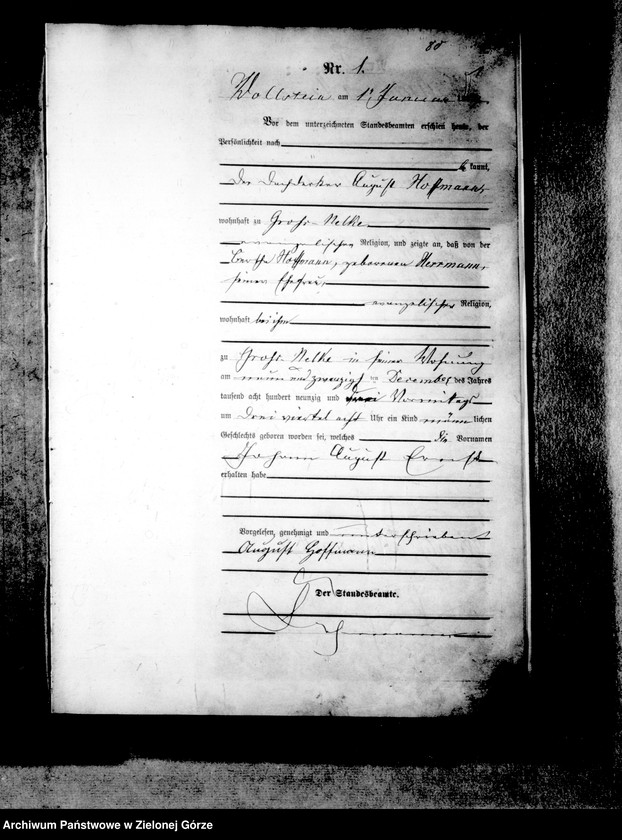 80
Nr. 1.
Wollstein am 1t Januar
Vor dem unterzeichneten Standesbeamten erschien heute, der
Persönlichkeit nach
kannt,
der Dachdecker August Hoffmann,
wohnhaft zu Groß-Nelke
evangelischer Religion, und zeigte an, daß von der
Hoffmann, geborenen Herrmann,
seiner Ehefrau,
evangelischer Religion,
wohnhaft bei ihm
zu Groß-Nelke in seiner Wohnung
am neun und zwanzigsten December des Jahres
tausend acht hundert neunzig und Vormittags
um Drei viertel acht Uhr ein Kind männlichen
Geschlechts geboren worden sei, welches die Vornamen
Johann August Ernst
erhalten habe
Vorgelesen, genehmigt und unterschrieben
August Hoffmann
Der Standesbeamte.